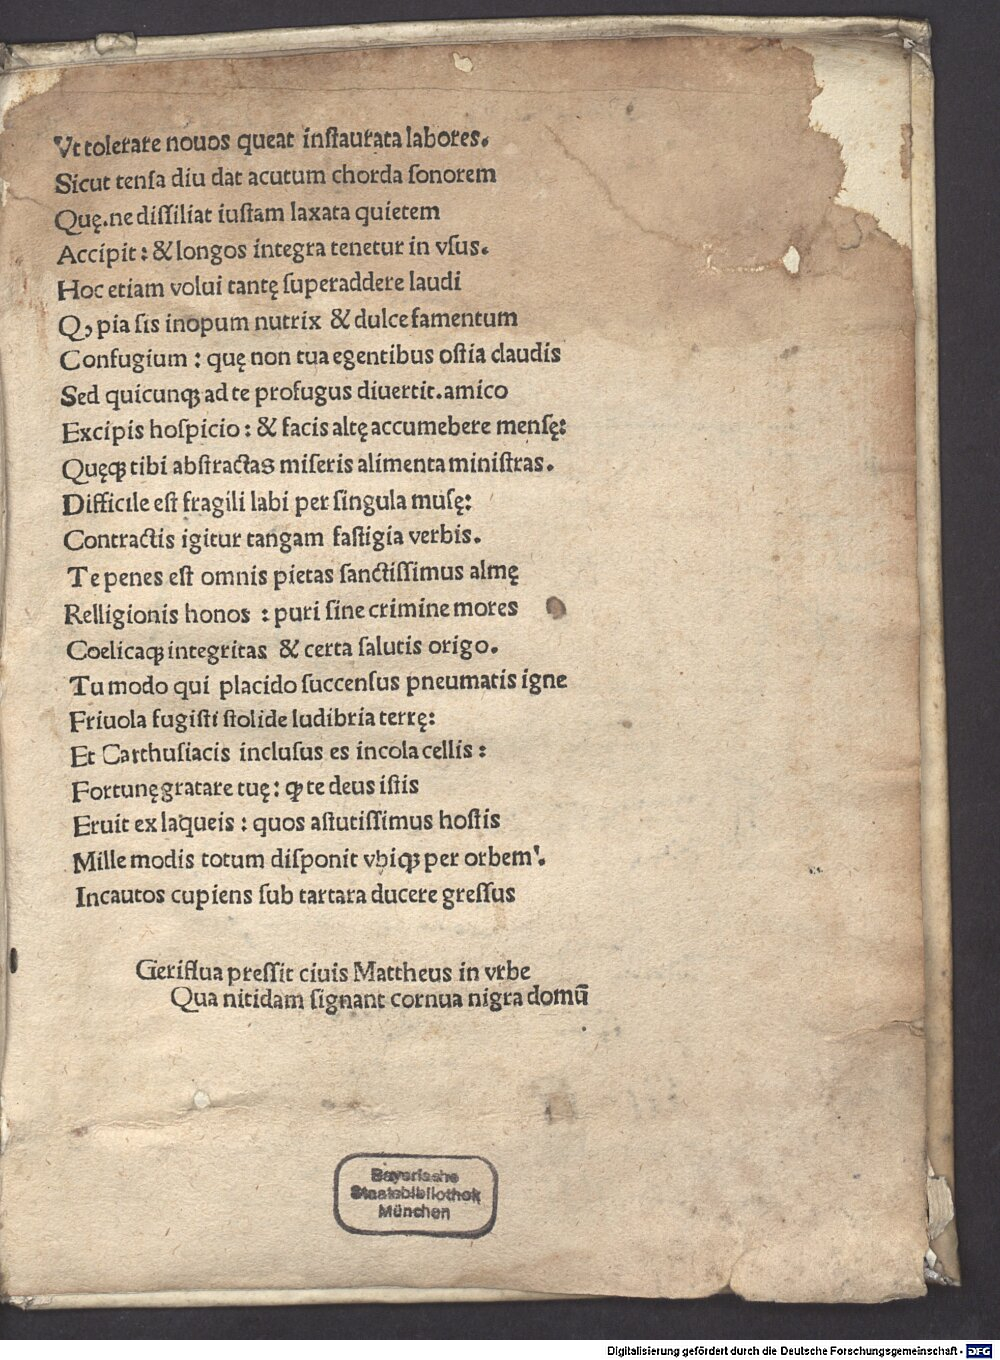 Vt tolerare nouos queat inſtaurata labores.
Sicut tenſa diu dat acutum chorda ſonorem
Quę.ne diſſiliat iuſtam laxata quietem
Accipit: & longos integra tenetur in vſus.
Hoc etiam volui tantę ſuperaddere laudi
Q, pia ſis inopum nutrix & dulce famentum
Confugium: quę non tua egentibus oſtia claudis
Sed quicunqꝫ ad te profugus diuertit.amico
Excipis hoſpicio: & facis altę accumebere menſę:
Quęqꝫ tibi abſtractas miſeris alimenta miniſtras.
Difficile eſt fragili labi per ſingula muſę:
Contractis igitur tangam faſtigia verbis.
Te penes eſt omnis pietas ſanctiſſimus almę
Relligionis honos : puri ſine crimine mores
Coelicaqꝫ integritas & certa ſalutis origo.
Tu modo qui placido ſuccenſus pneumatis igne
Friuola fugiſti ſtolide ludibria terrę:
Et Carthuſiacis incluſus es incola cellis:
Fortunę gratare tuę: ꝙ te deus iſtis
Eruit ex laqueis: quos aſtutiſſimus hoſtis
Mille modis totum diſponit vbiqꝫ per orbem'.
Incautos cupiens ſub tartara ducere greſſus
Geriflua preſſit ciuis Mattheus in vrbe
Qua nitidam ſignant cornua nigra domū
Bayerische
Staatsbibliothek
München
Digitalisierung gefördert durch die Deutsche Forschungsgemeinschaft - DFG